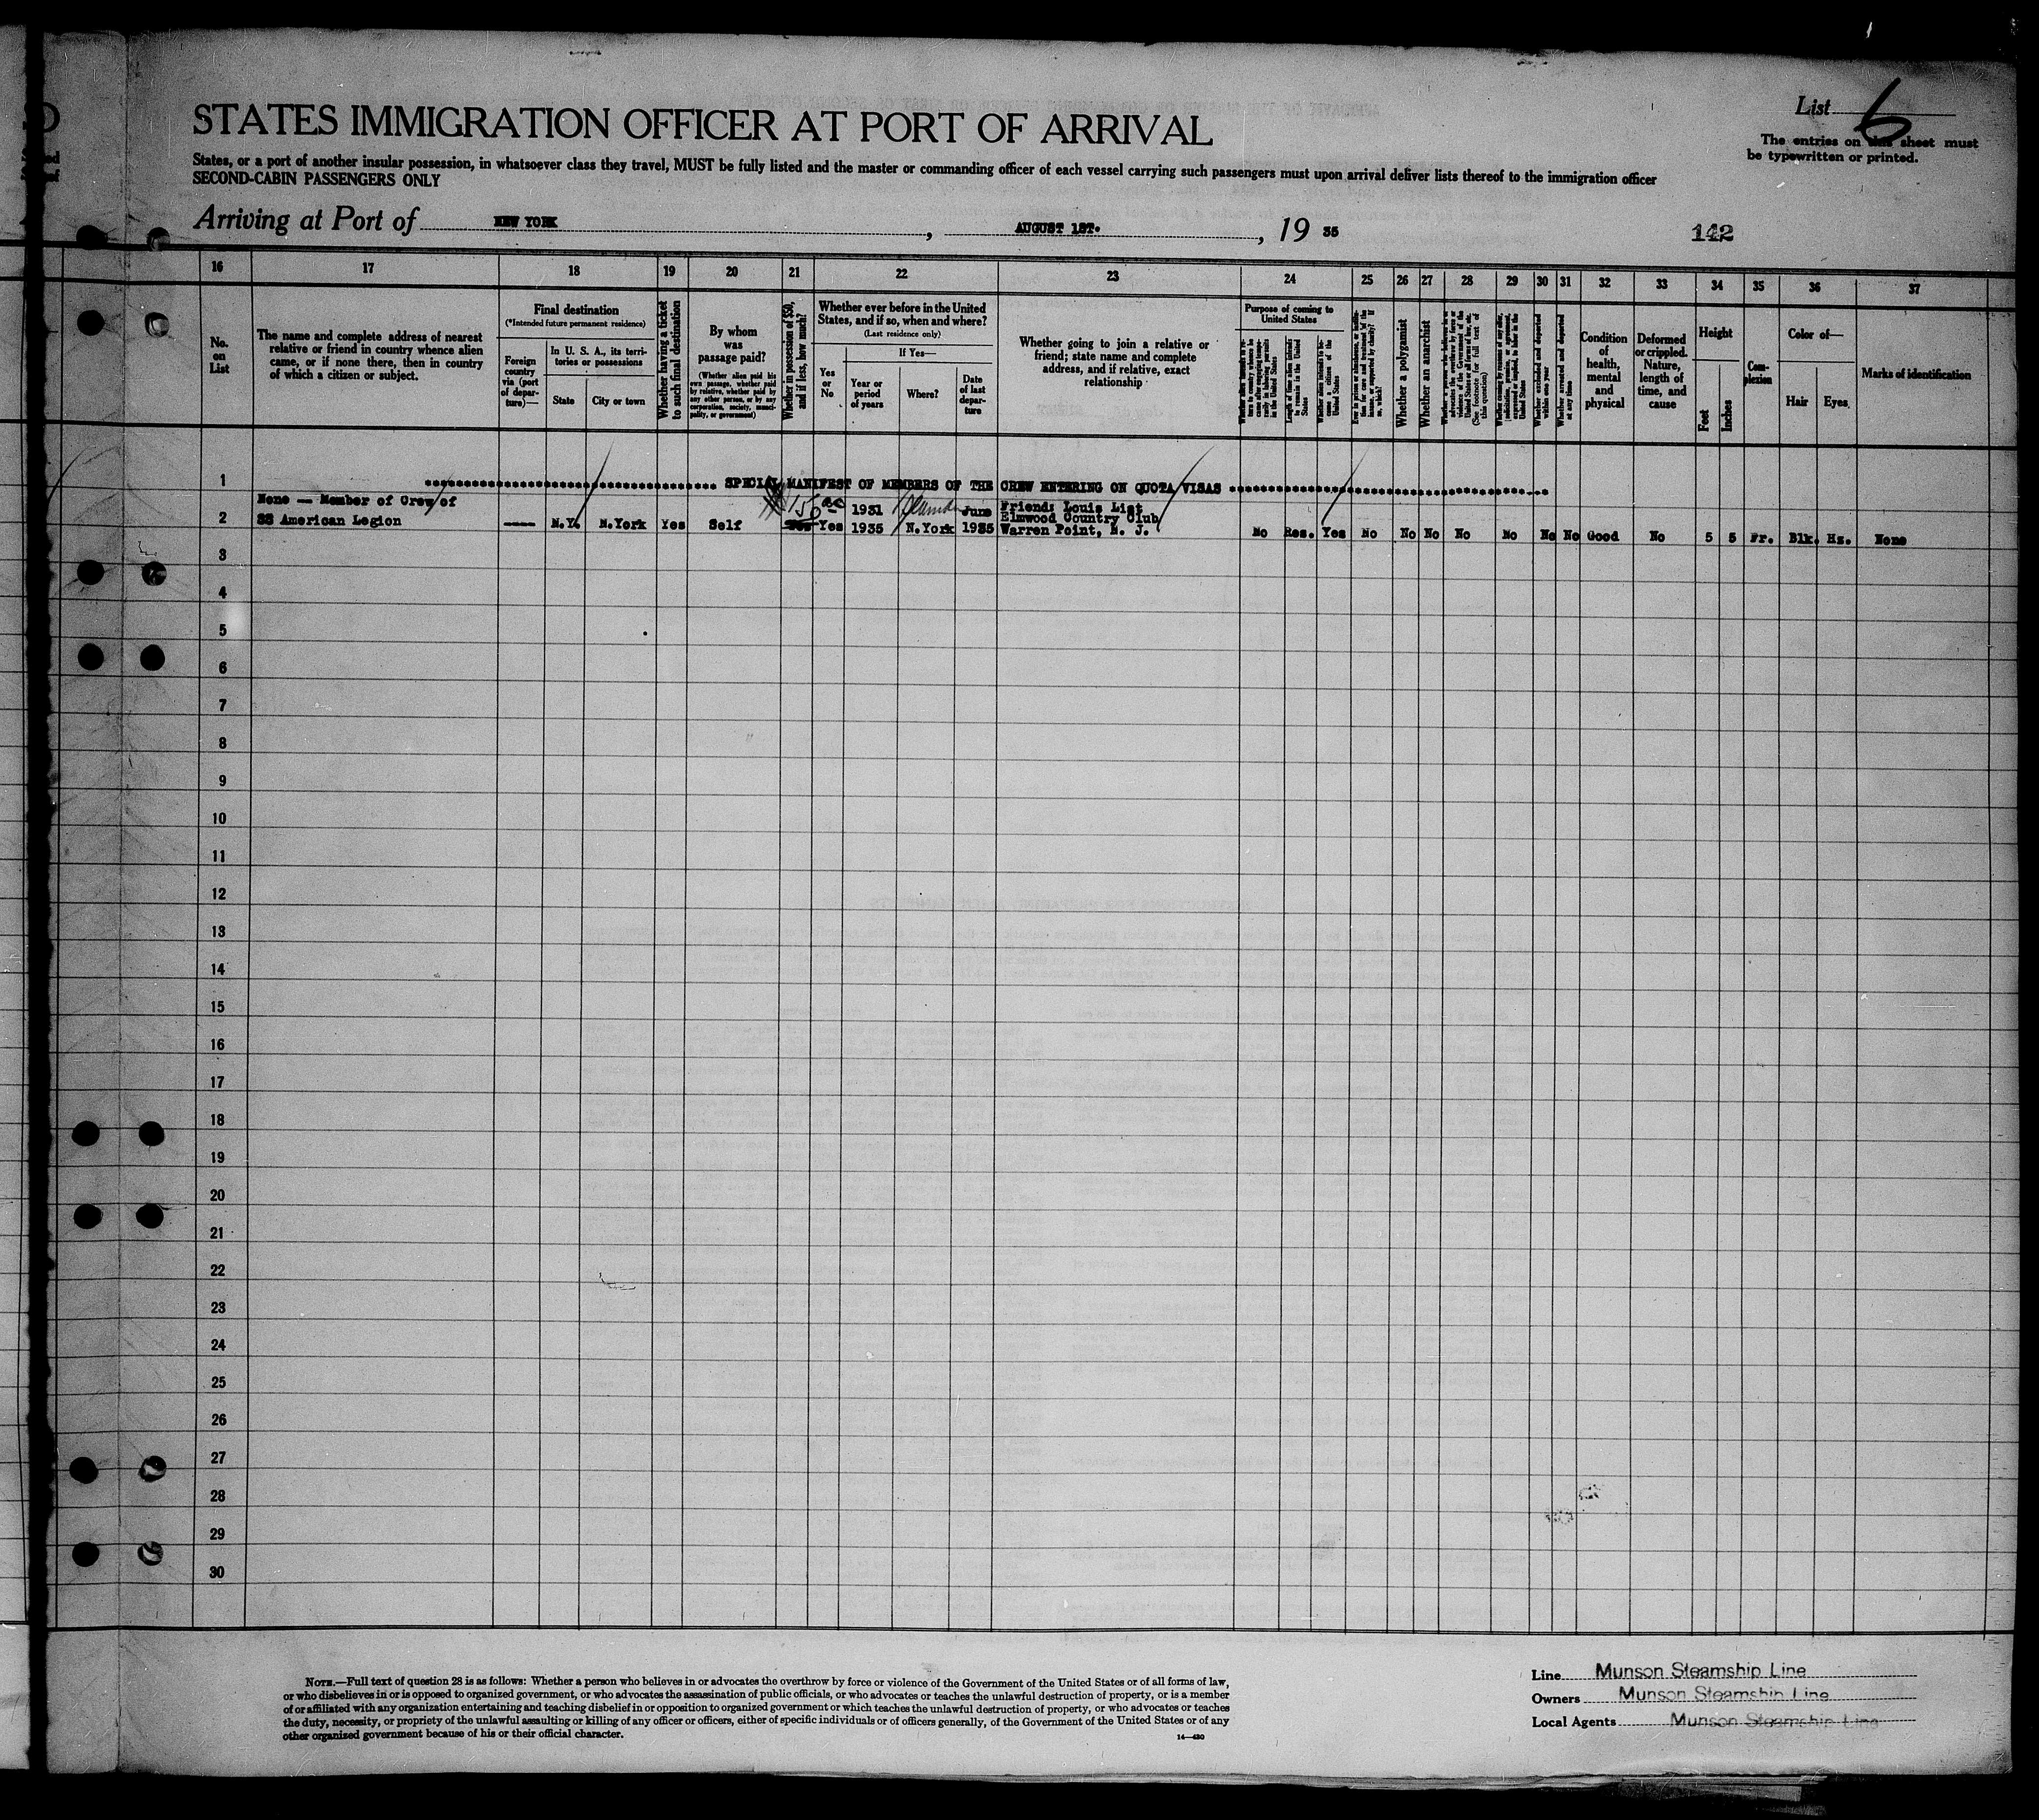 STATES IMMIGRATION OFFICER AT PORT OF ARRIVAL
List 6
The entries on this sheet must
be typewritten or printed.
States, or a port of another insular possession, in whatsoever class they travel, MUST be fully listed and the master or commanding officer of each vessel carrying such passengers must upon arrival deliver lists thereof to the immigration officer
SECOND-CABIN PASSENGERS ONLY
Arriving at Port of NEW YORK, AUGUST 1ST., 19 35
142
16 17 18 19 20 21 22 23 24 25 26 27 28 29 30 31 32 33 34 35 36 37
No.
on
List
The name and complete address of nearest
relative or friend in country whence alien
came, or if none there, then in country
of which a citizen or subject.
Final destination
(*Intended future permanent residence)
Foreign
country
via (port
of depar-
ture)—
In U. S. A., its terri-
tories or possessions
State
City or town
Whether having a ticket
to such final destination
By whom
was
passage paid?
(Whether alien paid his
own passage, whether paid
by relative, whether paid by
any other person, or by any
corporation, society, munici-
pality, or government)
Whether in possession of $50,
and if less, how much?
Whether ever before in the United
States, and if so, when and where?
(Last residence only)
Yes
or
No
If Yes—
Year or
period
of years
Where?
Date
of last
depar-
ture
Whether going to join a relative or
friend; state name and complete
address, and if relative, exact
relationship
Purpose of coming to
United States
Length of time alien intends to
be remain in the United
States
Whether alien intends to be-
come a citizen of the
United States
Whether a polygamist
Whether an anarchist
(See footnote for full text of
this question)
Whether excluded and deported
within one year
Whether arrested and deported
at any time
Condition
of
health,
mental
and
physical
Deformed
or crippled.
Nature,
length of
time, and
cause
Height
Feet
Inches
Com-
plexion
Color of—
Hair
Eyes
Marks of identification
1 SPECIAL MANIFEST OF MEMBERS OF THE CREW ENTERING ON QUOTA VISAS
None — Member of Crew of 1931 June Friend: Louis List
2 SS American Legion ---- N.Y. N.York Yes Self Yes Yes 1935 N.York 1935 Elmwood Country Club
Warren Point, N. J. No Res. Yes No No No No No No No Good No 5 5 Fr. Blk. Hz. None
$150
3
4
5
6
7
8
9
10
11
12
13
14
15
16
17
18
19
20
21
22
23
24
25
26
27
28
29
30
NOTE.—Full text of question 28 is as follows: Whether a person who believes in or advocates the overthrow by force or violence of the Government of the United States or of all forms of law,
or who disbelieves in or is opposed to organized government, or who advocates the assassination of public officials, or who advocates or teaches the unlawful destruction of property, or is a member
of or affiliated with any organization entertaining and teaching disbelief in or opposition to organized government or which teaches the unlawful destruction of property, or who advocates or teaches
the duty, necessity, or propriety of the unlawful assaulting or killing of any officer or officers, either of specific individuals or of officers generally, of the Government of the United States or of any
other organized government because of his or their official character.
14—430
Line Munson Steamship Line
Owners Munson Steamship Line
Local Agents Munson Steamship Line